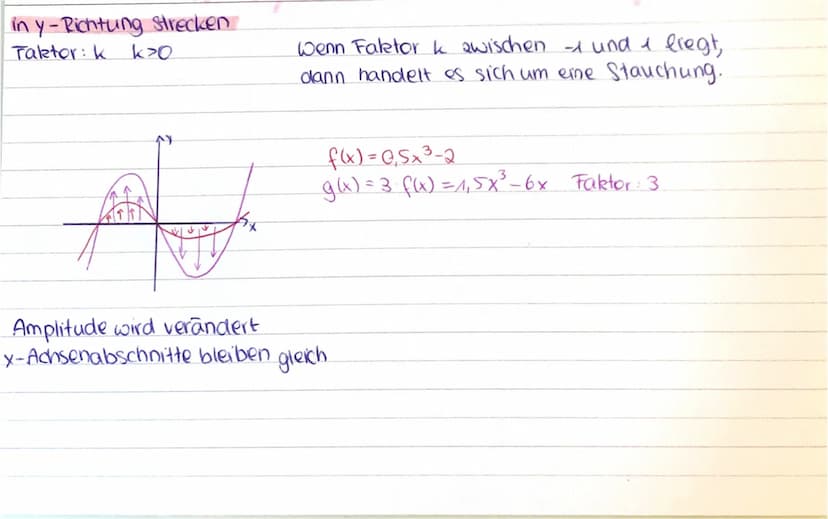 in y-Richtung strecken
Faktor: k k>0
Wenn Faktor k zwischen -1 und 1 liegt,
dann handelt es sich um eine Stauchung.
y
f(x) = 0,5x³-2
g(x) = 3 f(x) = 1,5x³-6x Faktor: 3
x
Amplitude wird verändert
x-Achsenabschnitte bleiben gleich